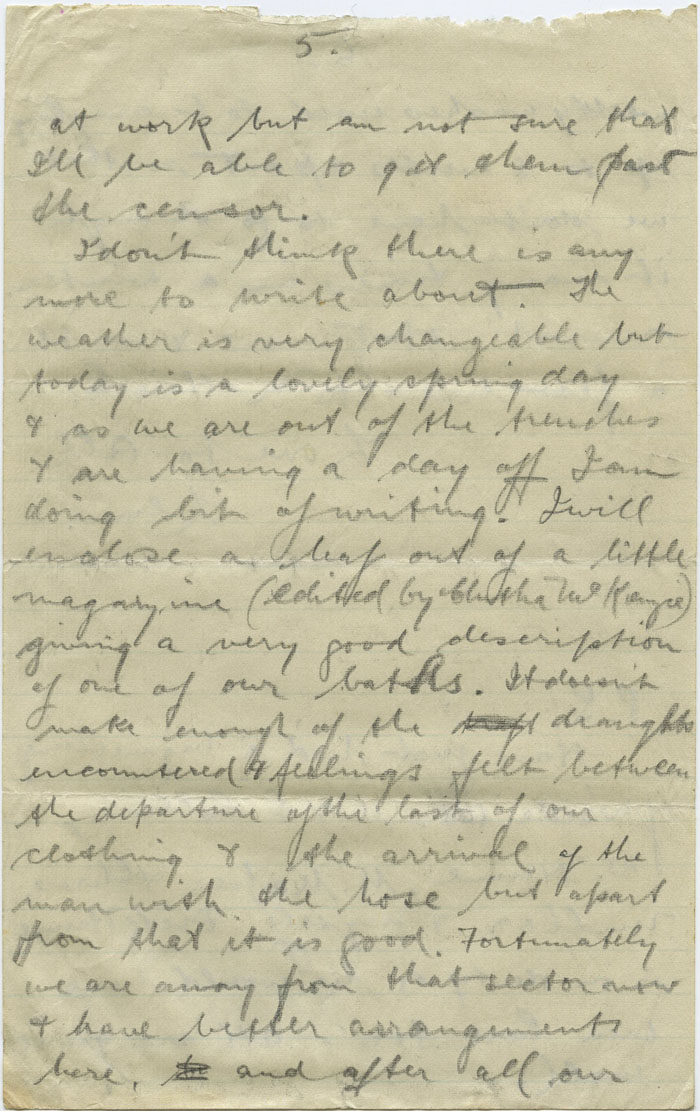 5.
at work but am not sure that
I'll be able to get them past
the censor.
I don't think there is any
more to write about. The
weather is very changeable but
today is a lovely spring day
& as we are out of the trenches
& are having a day off I am
doing bit of writing. I will
enclose a leaf out of a little
magazine (edited by Clutha McKenzie)
giving a very good description
of one of our baths. It doesn't
make enough of the draughts
encountered & feelings felt between
the departure of the last of our
clothing & the arrival of the
man with the hose but apart
from that it is good. Fortunately
we are away from that sector now
& have better arrangements
here, and after all our